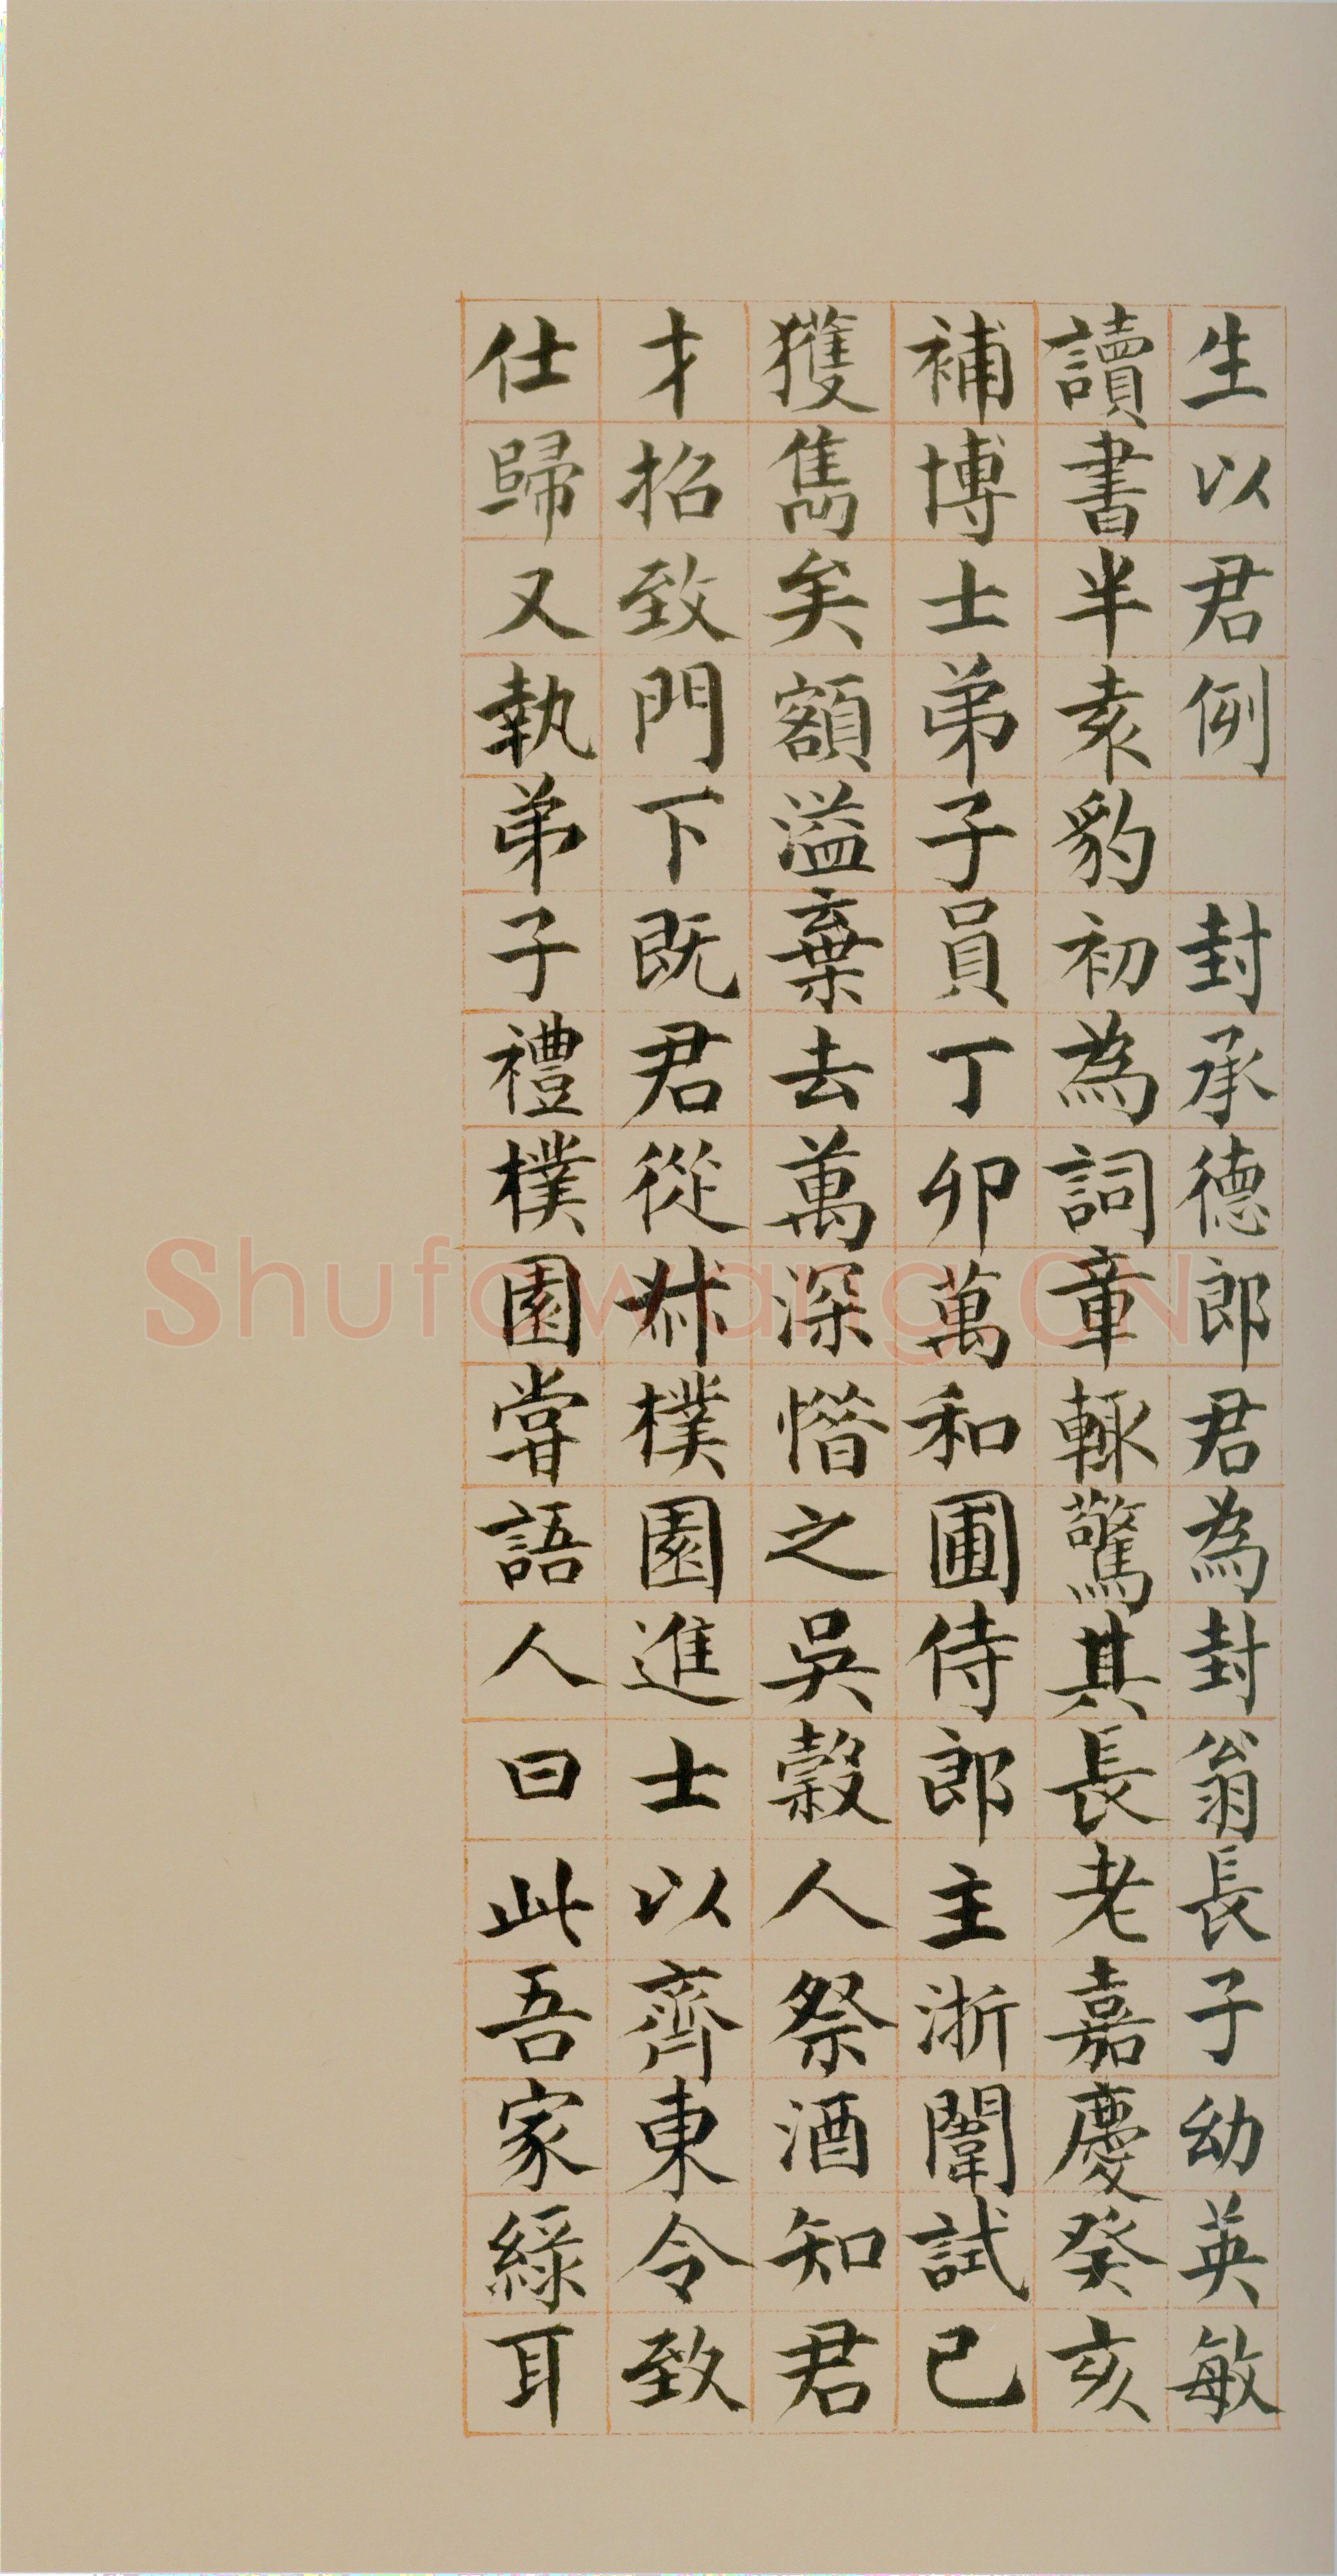 生以君例　封承德郎君為封翁長子幼英敏
讀書半袁豹初為詞章輙驚其長老嘉慶癸亥
補博士弟子員丁卯萬和圃侍郎主浙闈試已
獲雋矣額溢棄去萬深惜之吳穀人祭酒知君
才招致門下既君從叔樸園進士以齊東令致
仕歸又執弟子禮樸園嘗語人曰此吾家綠耳
Shufawang.CN